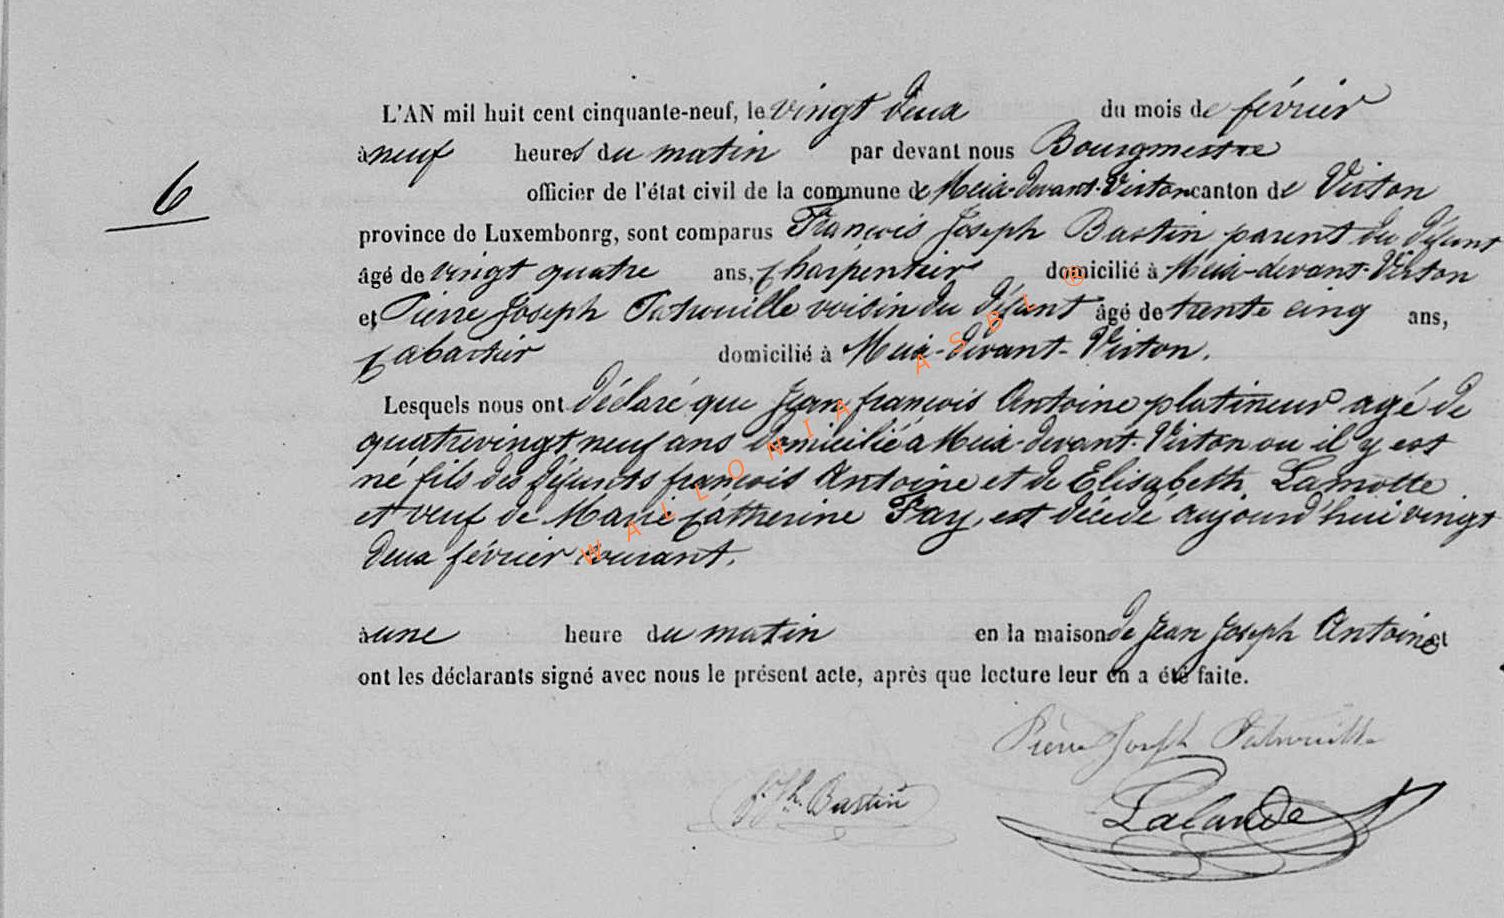 L'AN mil huit cent cinquante-neuf, le vingt deux du mois de février
6
à neuf heures du matin par devant nous Bourgmestre
officier de l'état civil de la commune de Meix-devant-Virton canton de Virton
province de Luxembonrg, sont comparus François Joseph Bastin parent du défunt
âgé de vingt quatre ans, charpentier domicilié à Meix-devant-Virton
et Pierre Joseph Patrouille voisin du défunt âgé de trente cinq ans,
cabartier domicilié à Meix-devant-Virton.
Lesquels nous ont déclaré que Jean françois Antoine platineur agé de
quatrevingt neuf ans domicilié à Meix-devant-Virton ou il y est
né fils des défunts françois Antoine et de Elisabeth Lamotte
et veuf de Marie Catherine Fay, est décédé aujourd'hui vingt
deux février courant.
à une heure du matin en la maison de Jean Joseph Antoine et
ont les déclarants signé avec nous le présent acte, après que lecture leur en a été faite.
Pierre Joseph Patrouille
f. Jh. Bastin
Lalande
WALLONIA ASBL ®